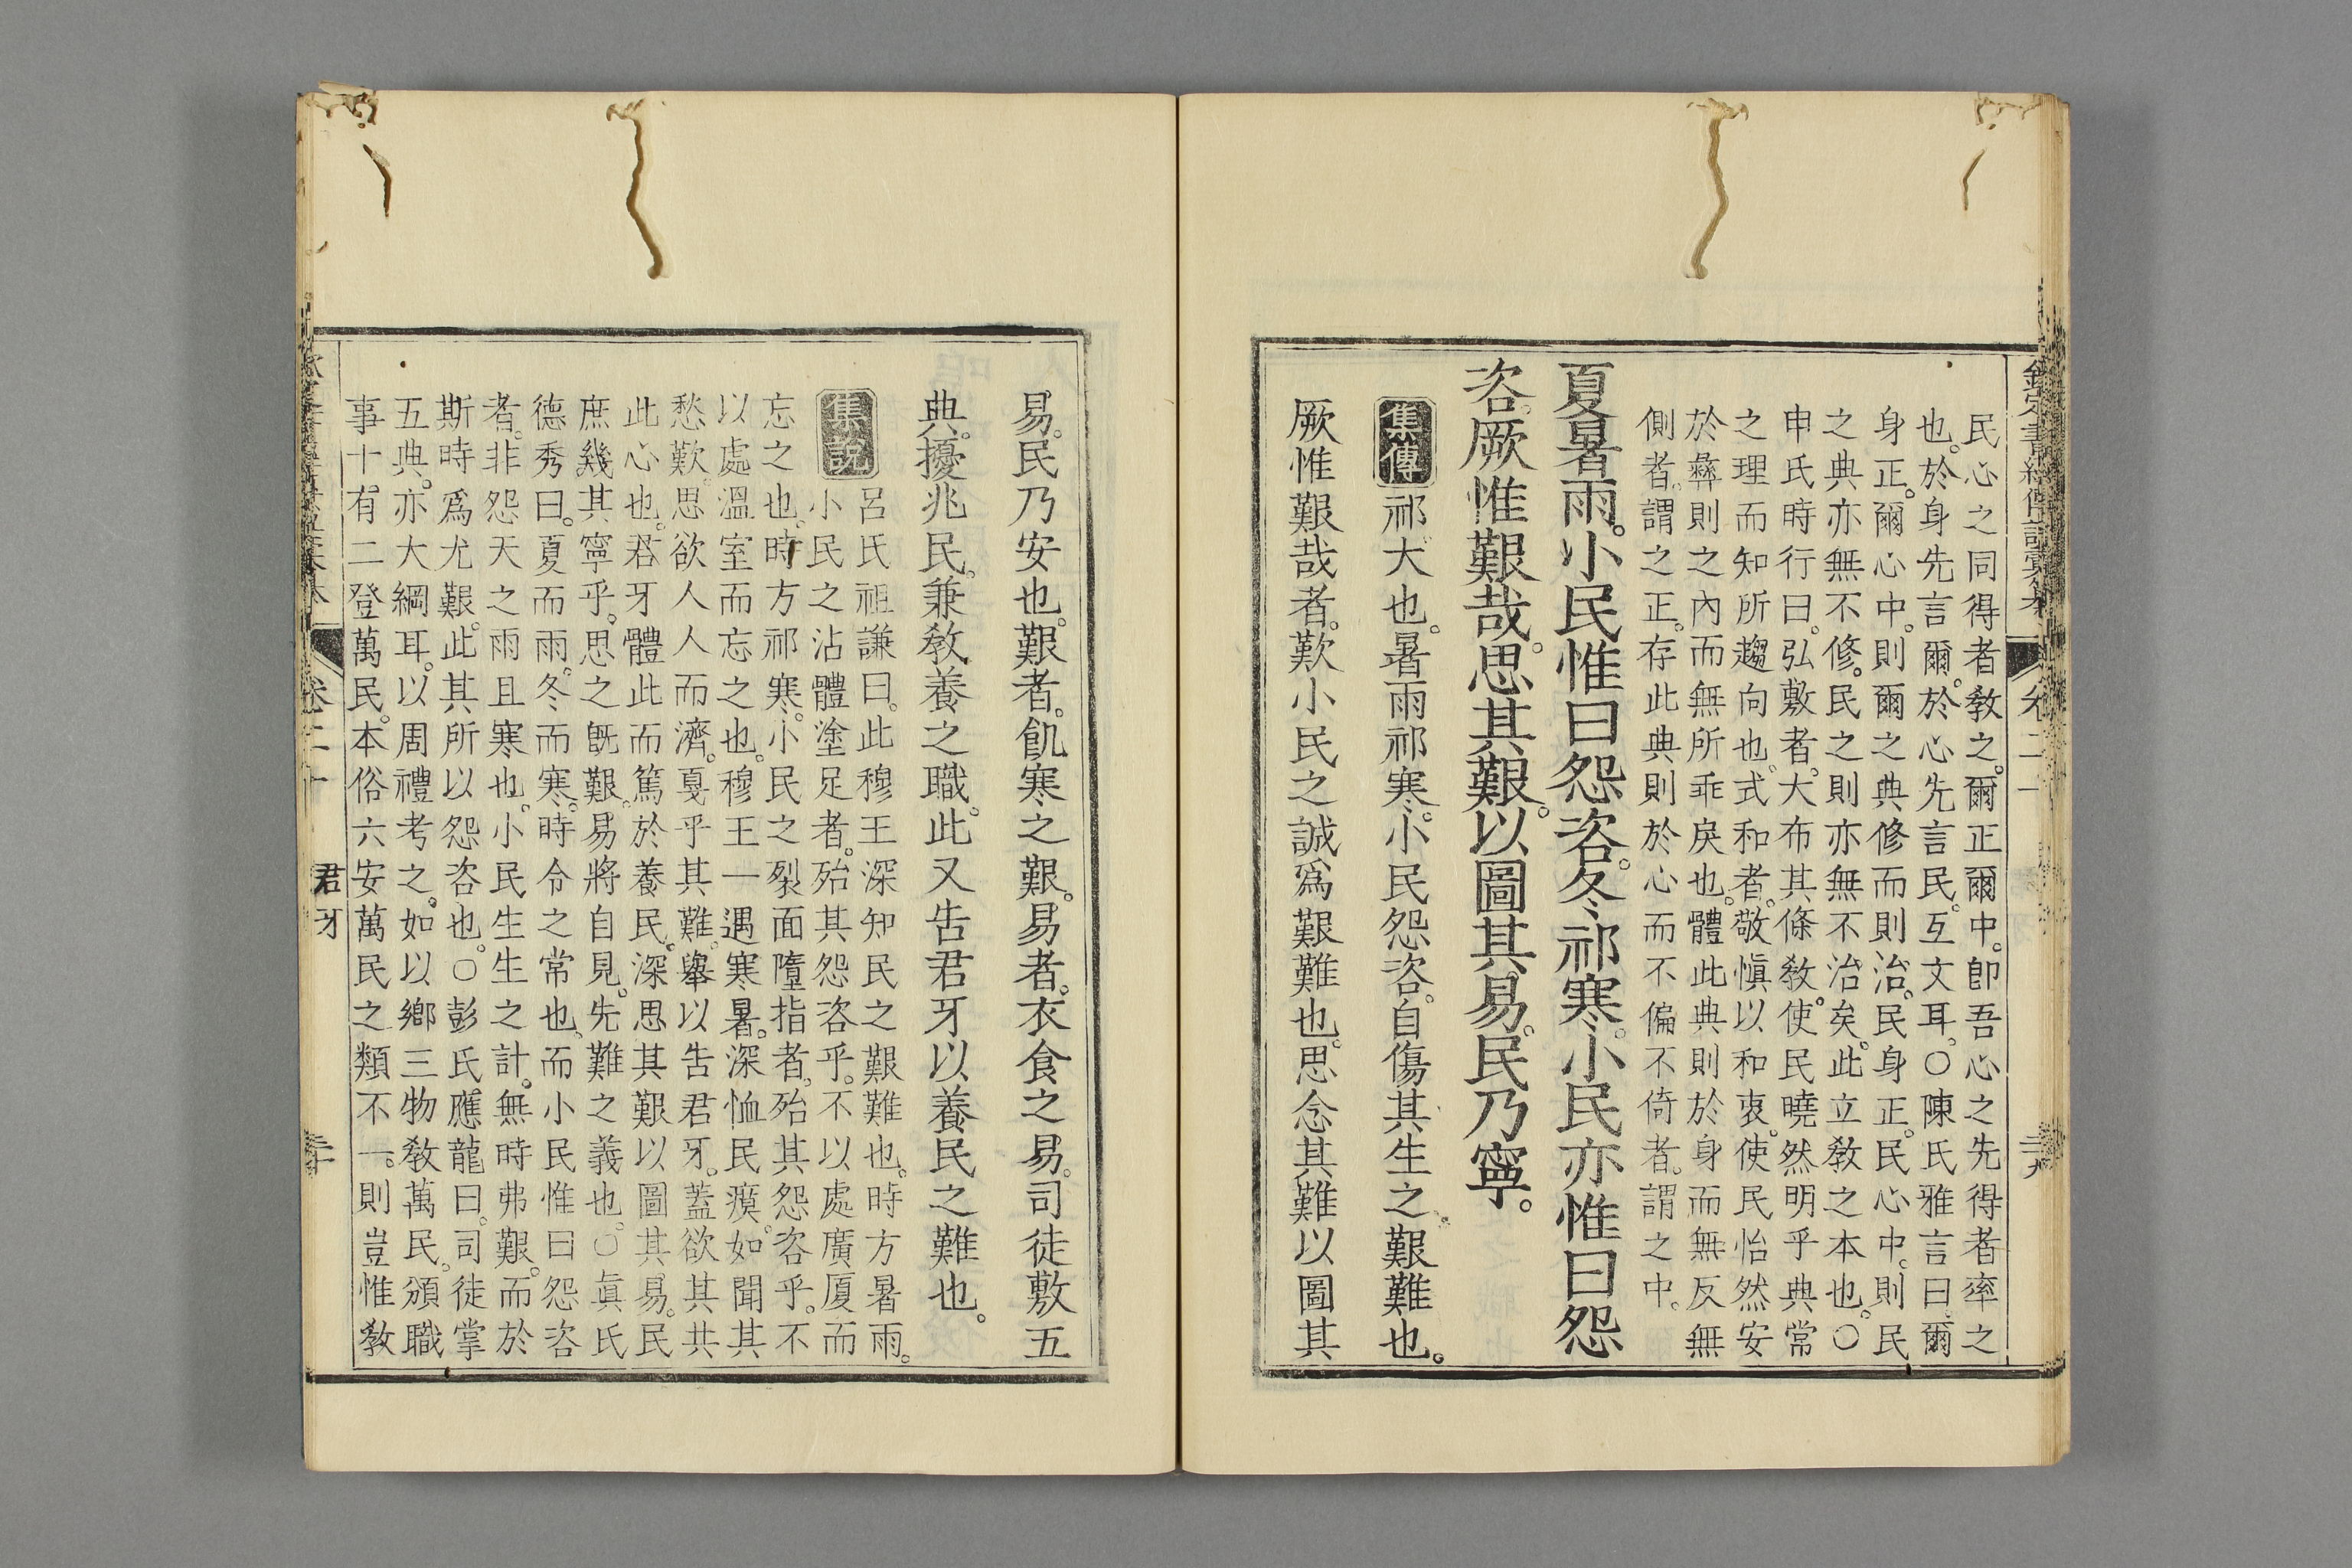 民心之同得者教之。爾正爾中。卽吾心之先得者率之
也。於身先言爾。於心先言民。互文耳。○陳氏雅言曰。爾
身正。爾心中。則爾之典修而則治。民身正。民心中。則民
之典亦無不修。民之則亦無不治矣。此立敎之本也。○
申氏時行曰。弘敷者。大布其條敎。使民曉然明乎典常
之理而知所趨向也。式和者。敬愼以和衷。使民怡然安
於彝則之內而無所乖戾也。體此典則於身而無反無
側者。謂之正。存此典則於心而不偏不倚者。謂之中。
夏暑雨。小民惟曰怨咨。冬祁寒。小民亦惟曰怨
咨。厥惟艱哉。思其艱。以圖其易。民乃寧。
集傳 祁大也。暑雨祁寒。小民怨咨。自傷其生之艱難也。
厥惟艱哉者。歎小民之誠爲艱難也。思念其難以圖其
易。民乃安也。艱者。飢寒之艱。易者。衣食之易。司徒敷五
典。擾兆民。兼敎養之職。此又告君牙以養民之難也。
集說 呂氏祖謙曰。此穆王深知民之艱難也。時方暑雨。
小民之沾體塗足者。殆其怨咨乎。不以處廣厦而
忘之也。時方祁寒。小民之裂面墮指者。殆其怨咨乎。不
以處溫室而忘之也。穆王一遇寒暑。深恤民瘼。如聞其
愁歎。思欲人人而濟。戛乎其難。舉以告君牙。蓋欲其共
此心也。君牙體此而篤於養民。深思其艱以圖其易。民
庶幾其寧乎。思之旣艱。易將自見。先難之義也。○眞氏
德秀曰。夏而雨。冬而寒。時令之常也。而小民惟曰怨咨
者。非怨天之雨且寒也。小民生生之計。無時弗艱。而於
斯時爲尤艱。此其所以怨咨也。○彭氏應龍曰。司徒掌
五典。亦大綱耳。以周禮考之。如以鄉三物敎萬民。頒職
事十有二登萬民。本俗六安萬民之類不一。則豈惟敎
卷二十
君牙